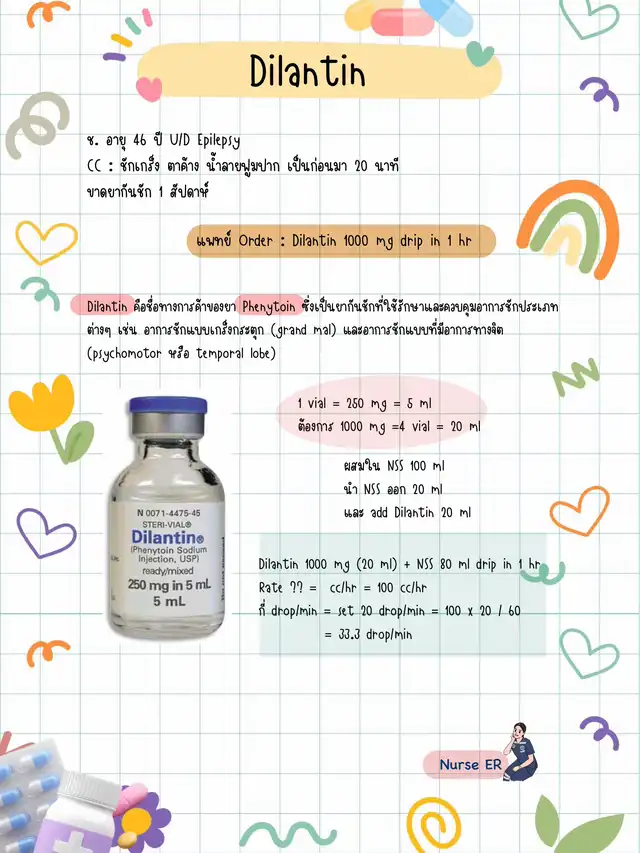 Dilantin
ช. อายุ 46 ปี U/D Epilepsy
CC : ชักเกร็ง ตาค้าง น้ำลายฟูมปาก เป็นก่อนมา 20 นาที
ขาดยากันชัก 1 สัปดาห์
แพทย์ Order : Dilantin 1000 mg drip in 1 hr
Dilantin คือชื่อทางการค้าของยา Phenytoin ซึ่งเป็นยากันชักที่ใช้รักษาและควบคุมอาการชักประเภท
ต่างๆ เช่น อาการชักแบบเกร็งกระตุก (grand mal) และอาการชักแบบที่มีอาการทางจิต
(psychomotor หรือ temporal lobe)
1 vial = 250 mg = 5 ml
ต้องการ 1000 mg =4 vial = 20 ml
ผสมใน NSS 100 ml
นำ NSS ออก 20 ml
และ add Dilantin 20 ml
N 0071-4475-45
STERI-VIAL®
Dilantin®
(Phenytoin Sodium
Injection, USP)
ready/mixed
250 mg in 5 mL
5 mL
Dilantin 1000 mg (20 ml) + NSS 80 ml drip in 1 hr
Rate ?? = cc/hr = 100 cc/hr
กี่ drop/min = set 20 drop/min = 100 x 20 / 60
= 33.3 drop/min
Nurse ER